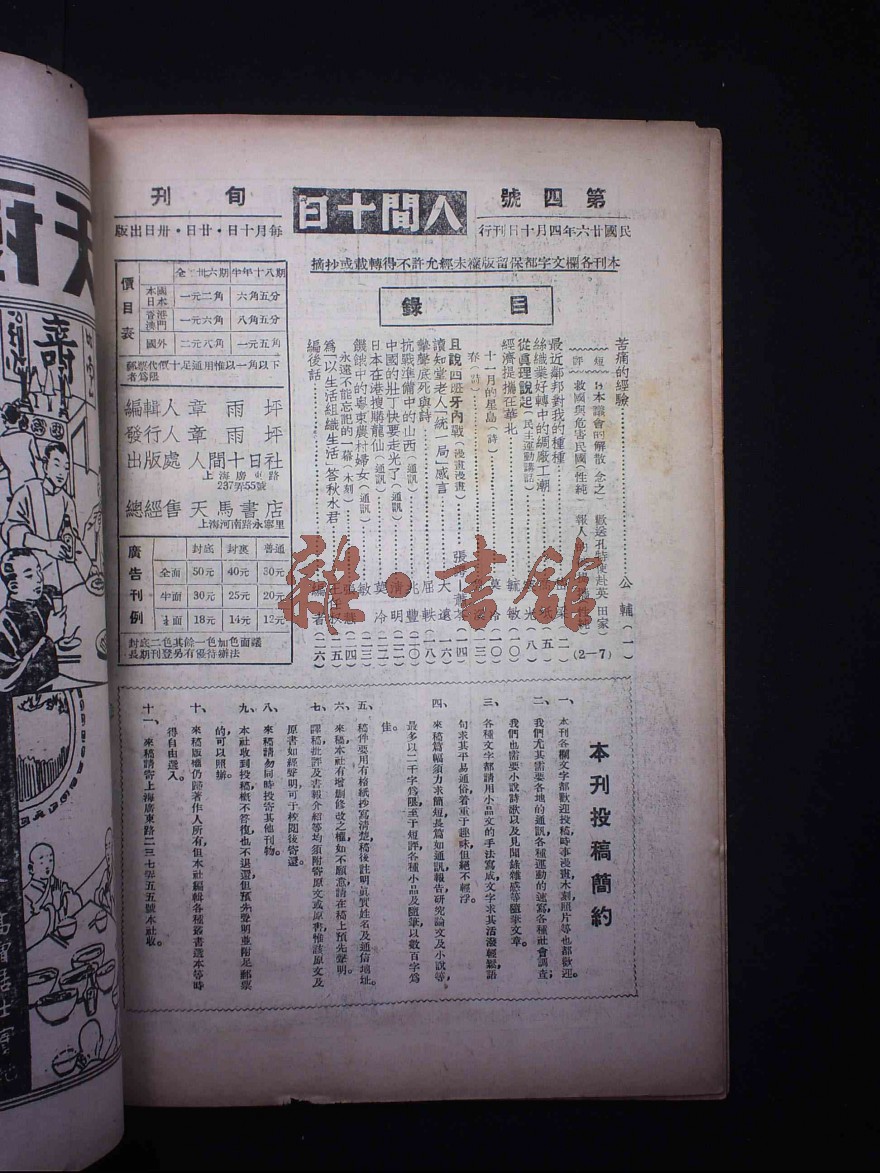 第四號
人間十日
旬刊
民國廿六年四月十日刊行
每月十日·廿日·卅日出版
本刊各欄文字都保留版權未經允許不得轉載或抄摘
目錄
苦痛的經驗 公輔(一)
短評
日本議會的解散(念之) 歡送孔特使赴英(田家)
救國與危害民國(性純)
(2—7)
最近鄰邦對我的種種
絲織業好轉中的綢廠工潮
從眞理說起(民主運動講話)
經濟提攜在華北 毓敏(一〇)
十一月的星島(詩)
春(詩)
且說四班牙內戰(漫畫漫畫)
讀知堂老人「統一局」感言 大遠(一六)
擊聲底死與詩 屈軼(一八)
抗戰準備中的山西(通訊) 北豐(二〇)
中國的壯丁快要走光了(通訊) 清明(二二)
日本在港搜購龍仙(通訊) 莫冷(二三)
饑蝕中的粵東農村婦女(通訊)
永遠不能忘記的一幕(木刻)
為「以生活組織生活」答秋水君
編後話 編者(二六)
價目表
全年卅六期 半年十八期
本國 日本 一元二角 六角五分
香港 澳門 一元六角 八角五分
國外 二元八角 一元五角
郵票代價十足通用惟以一角以下者為限
編輯人 章雨坪
發行人 章雨坪
出版處 人間十日社
上海廣東路
237弄55號
總經售 天馬書店
上海河南路永寧里
廣告刊例
封底 封裏 普通
全面 50元 40元 30元
半面 30元 25元 20元
¼面 18元 14元 12元
封底二色其餘一色加色面議
長期刊登另有優待辦法
本刊投稿簡約
一、本刊各欄文字都歡迎投稿時事漫畫木刻照片等也都歡迎。
二、我們尤其需要各地的通訊各種運動的速寫各種社會調查；
我們也需要小說詩歌以及見聞錄雜感等隨筆文章。
三、各種文字都請用小品文的手法寫成文字求其活潑輕鬆語
句求其平易通俗着重于趣味但絕不輕浮。
四、來稿篇幅須力求簡短長篇如通訊報告研究論文及小說等，
最多以二千字為限至于短評各種小品及隨筆以數百字為
佳。
五、稿件要用有格紙抄寫清楚稿後註明眞實姓名及通信地址。
六、來稿本社有增刪修改之權如不願意請在稿上預先聲明。
七、譯稿批評及書報介紹等均須附寄原文或原書，惟該原文及
原書如經聲明可于校閱後寄還。
八、來稿請勿同時投寄其他刊物。
九、本社收到投稿概不答復也不退還但預先聲明並附足郵票
的可以照辦。
十、來稿版權仍歸著作人所有但本社編輯各種叢書選本等時
得自由選入。
十一、來稿請寄上海廣東路二三七弄五五號本社收。
雜·書館